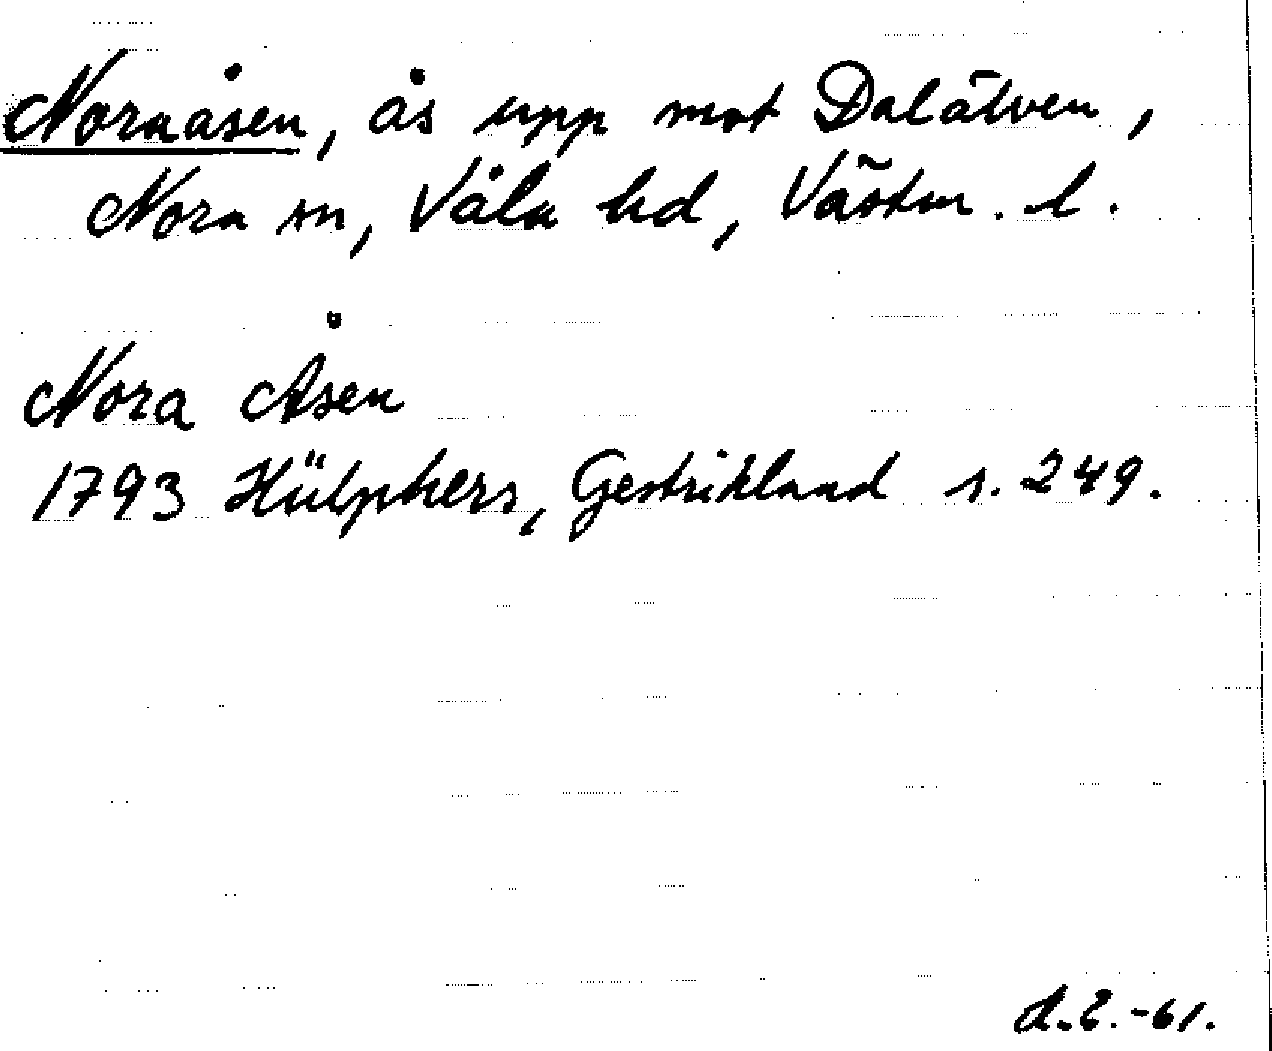 Noraåsen, ås upp mot Dalälven,
Nora sn, Våla hd, Västm. l.
Nora Åsen
1793 Hülphers, Gestrikland s. 249.